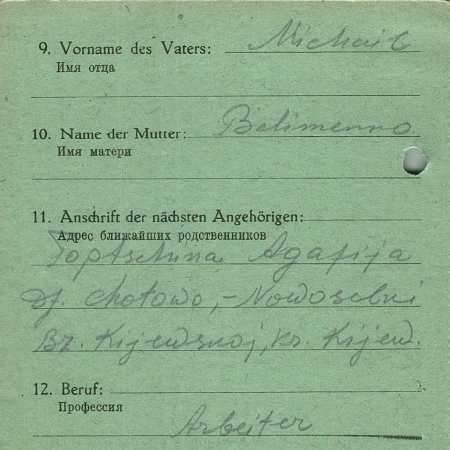 9. Vorname des Vaters: Michail
Имя отца
10. Name der Mutter: Belimenno
Имя матери
11. Anschrift der nächsten Angehörigen:
Адрес ближайших родственников
Toptschina Agafija
Df. Chotowo,-Nowoselni
Bz. Kijewskoj, kr. Kijew.
12. Beruf:
Профессия
Arbeiter